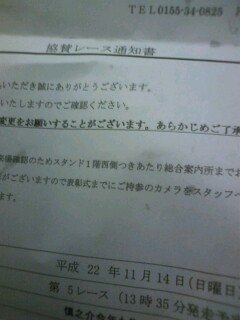 TEL0155-34-0825
協賛レース通知書
いただき誠にありがとうございます。
いたしますのでご確認ください。
変更をお願いすることがございます。あらかじめご了承
確認のためスタンド1階西側つきあたり総合案内所までお
がございますので表彰式までにご持参のカメラをスタッフ
ます。
平成 22 年11月14日(日曜日)
第 5レース (13時35分発走予定